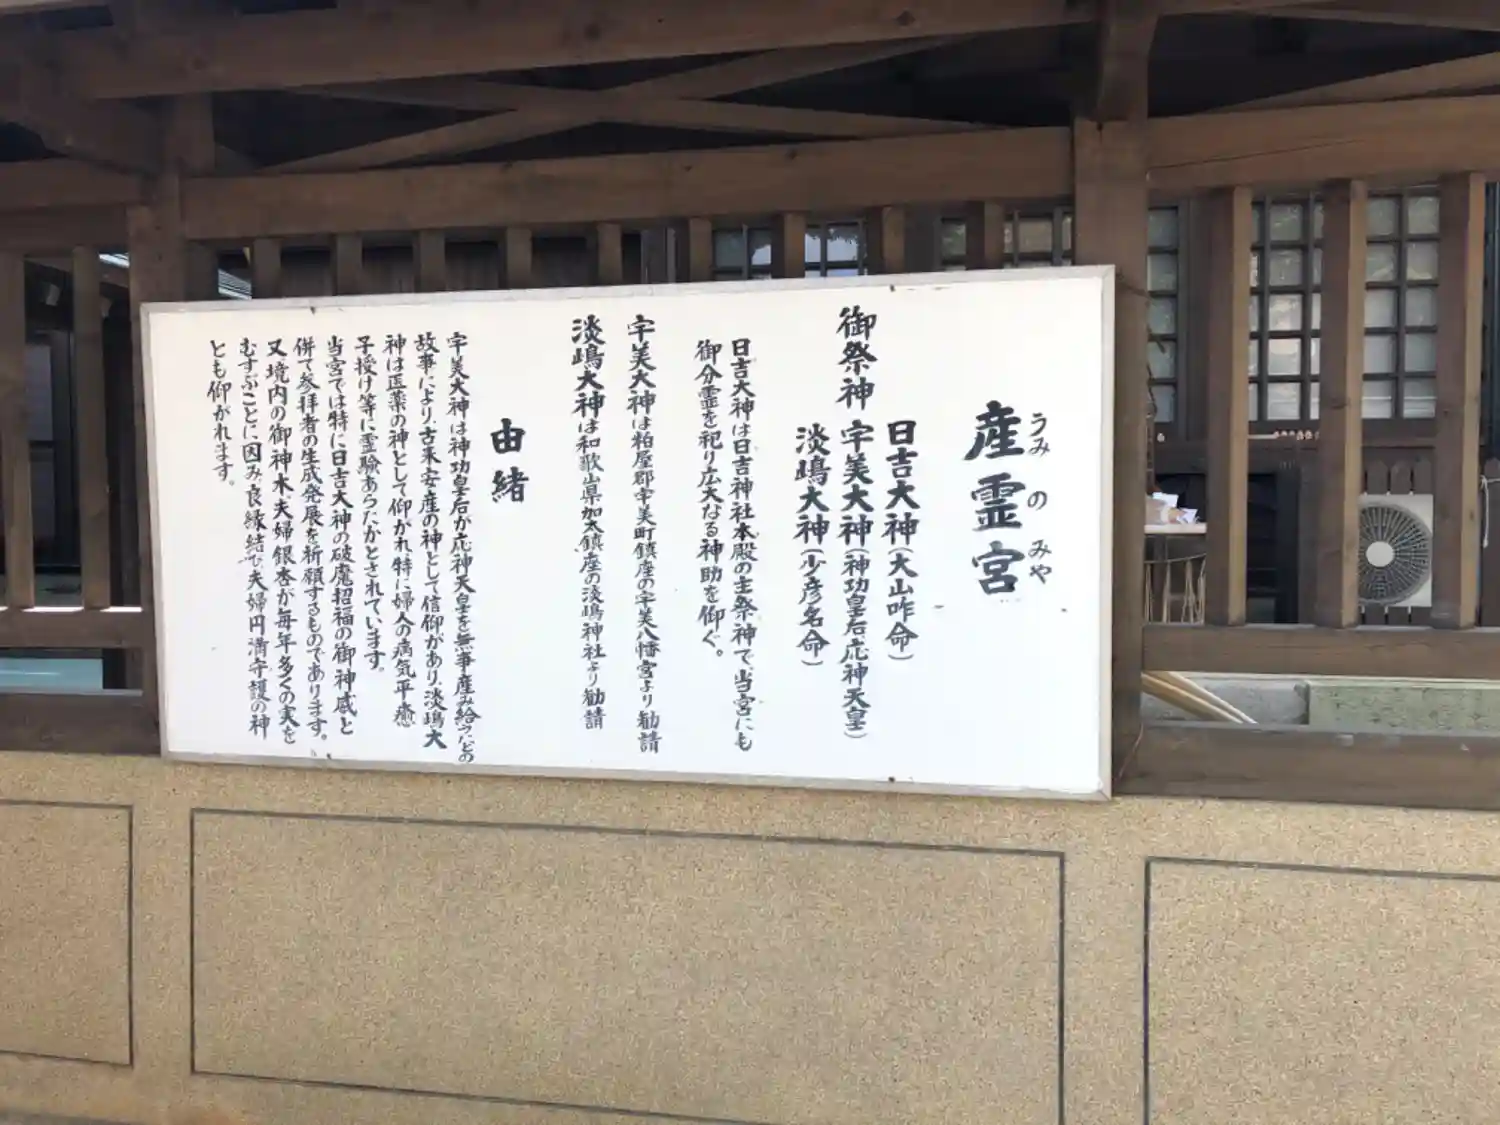 産霊宮
うみのみや
御祭神
日吉大神(大山咋命)
宇美大神(神功皇后応神天皇)
淡嶋大神(少彦名命)
日吉大神は日吉神社本殿の主祭神で、当宮にも
御分霊を祀り広大なる神助を仰ぐ。
宇美大神は粕屋郡宇美町鎮座の宇美八幡宮より勧請
淡嶋大神は和歌山県加太鎮座の淡嶋神社より勧請
由緒
宇美大神は神功皇后が応神天皇を無事産み給うたとの
故事により、古来安産の神として信仰があり、淡嶋大
神は医薬の神として仰がれ、特に婦人の病気平癒
子授け等に霊験あらたかとされています。
当宮では特に日吉大神の破魔招福の御神威と
併て参拝者の生成発展を祈願するものであります。
又境内の御神木夫婦銀杏が毎年多くの実を
むすぶことに因み良縁結び夫婦円満守護の神
とも仰がれます。